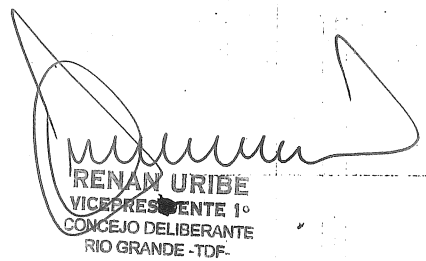 RENAN URIBE
VICEPRESIDENTE 1º
CONCEJO DELIBERANTE
RIO GRANDE -TDF-